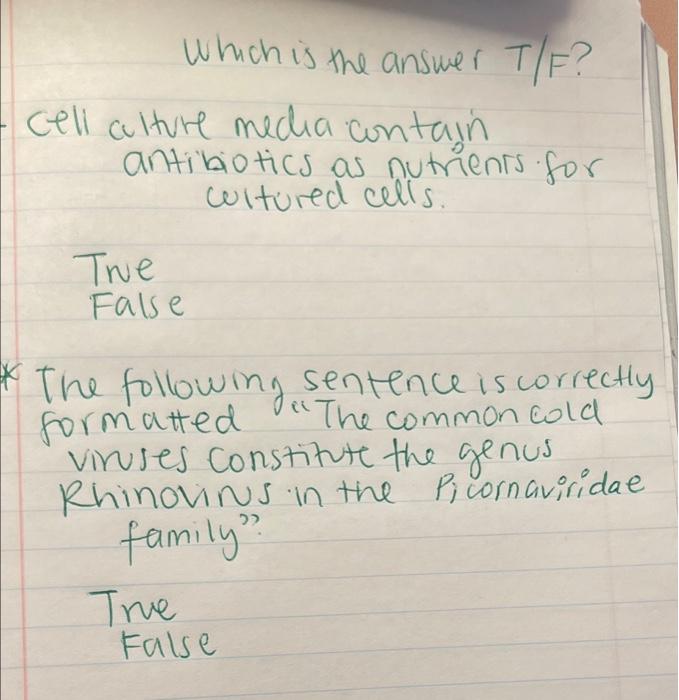 Which is the answer T/F?
- Cell culture media contain
antibiotics as nutrients for
cultured cells.
True
False
* The following sentence is correctly
formatted "The common cold
viruses constitute the genus
Rhinovirus in the Picornaviridae
family"?
True
False